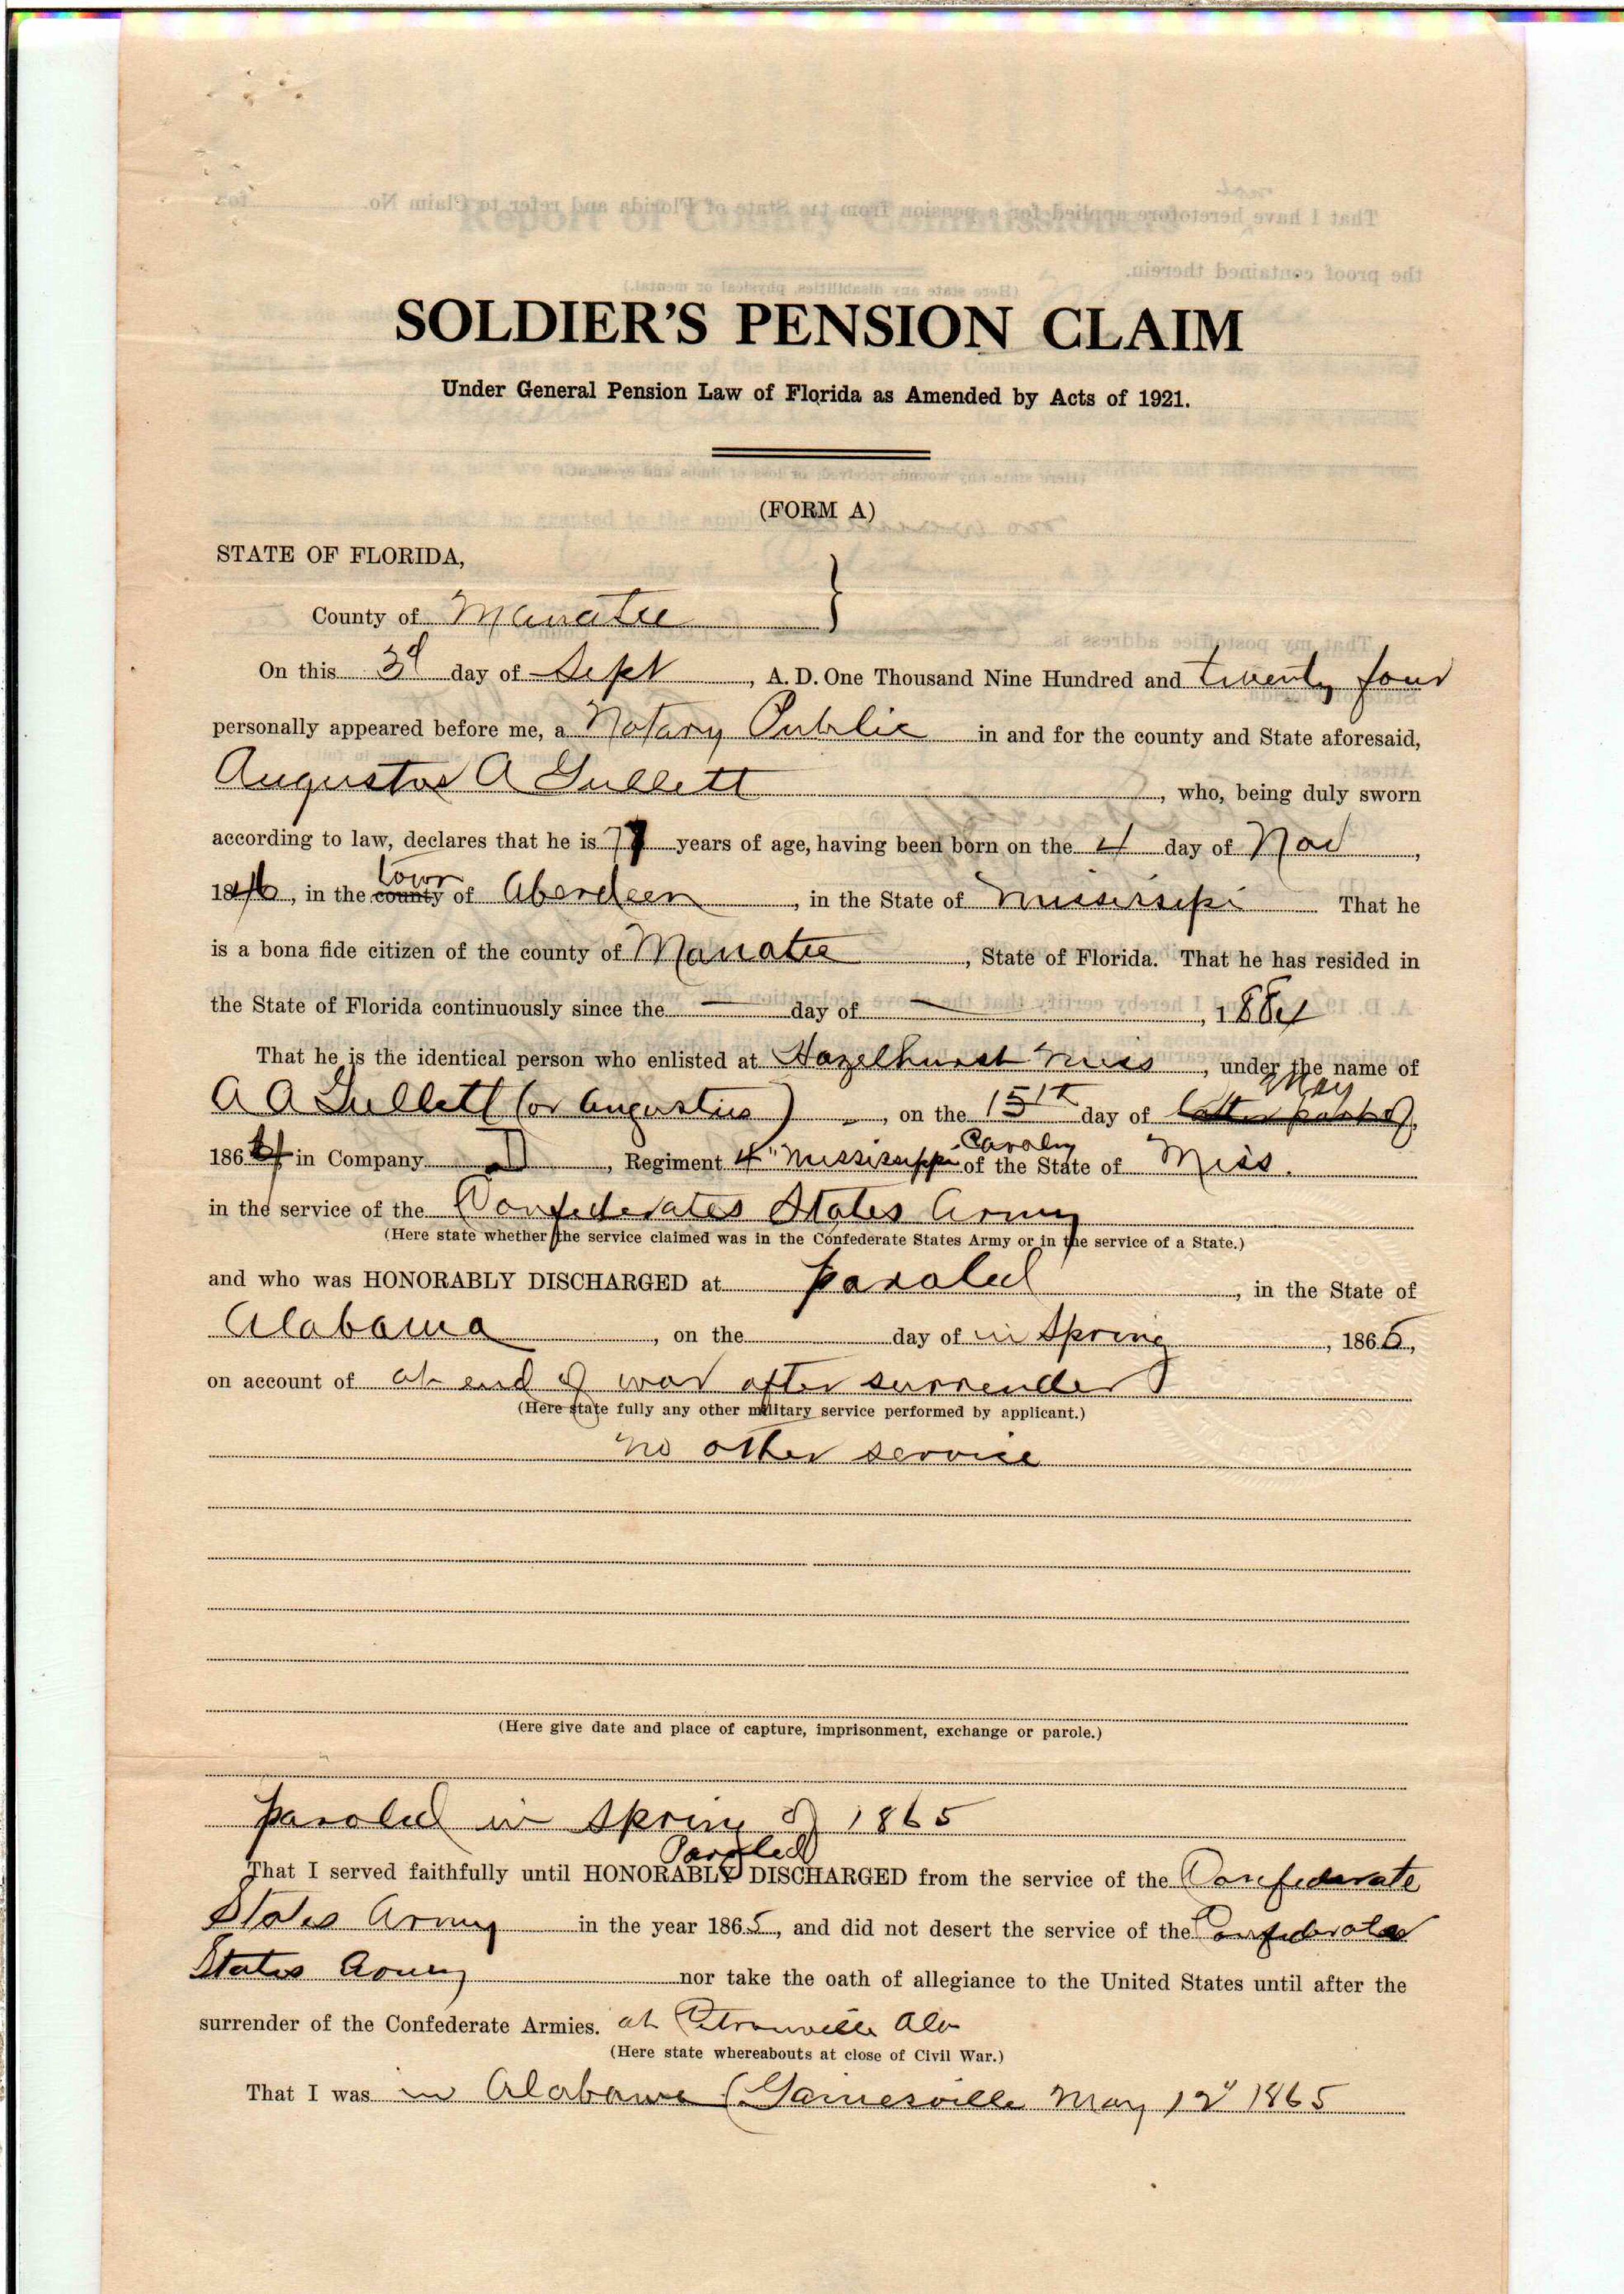 SOLDIER'S PENSION CLAIM
Under General Pension Law of Florida as Amended by Acts of 1921.
(FORM A)
STATE OF FLORIDA,
County of Manatee
On this 3d day of Sept, A. D. One Thousand Nine Hundred and twenty four
personally appeared before me, a Notary Public in and for the county and State aforesaid,
Augustus A Gullett, who, being duly sworn
according to law, declares that he is 77 years of age, having been born on the 4 day of Nov,
town
1846, in the county of Aberdeen, in the State of Mississippi That he
is a bona fide citizen of the county of Manatee, State of Florida. That he has resided in
the State of Florida continuously since the — day of —, 188
That he is the identical person who enlisted at Hazelhurst Miss, under the name of
May
A A Gullett (or Augustus), on the 15th day of latter part of,
Cavalry
1864 in Company D, Regiment 4" Mississippi of the State of Miss.
in the service of the Confederates States Army
(Here state whether the service claimed was in the Confederate States Army or in the service of a State.)
and who was HONORABLY DISCHARGED at paroled, in the State of
Alabama, on the day of in Spring, 1865,
on account of at end of war after surrender
(Here state fully any other military service performed by applicant.)
no other service
(Here give date and place of capture, imprisonment, exchange or parole.)
paroled in Spring of 1865
Paroled
That I served faithfully until HONORABLY DISCHARGED from the service of the Confederate
States Army in the year 1865, and did not desert the service of the Confederates
States Army nor take the oath of allegiance to the United States until after the
surrender of the Confederate Armies. at Ala
(Here state whereabouts at close of Civil War.)
That I was in Alabama (Gainesville May 12" 1865